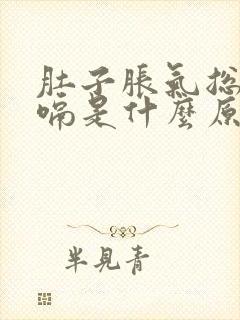 肚子脹氣总
嗝是什麼原
半見青